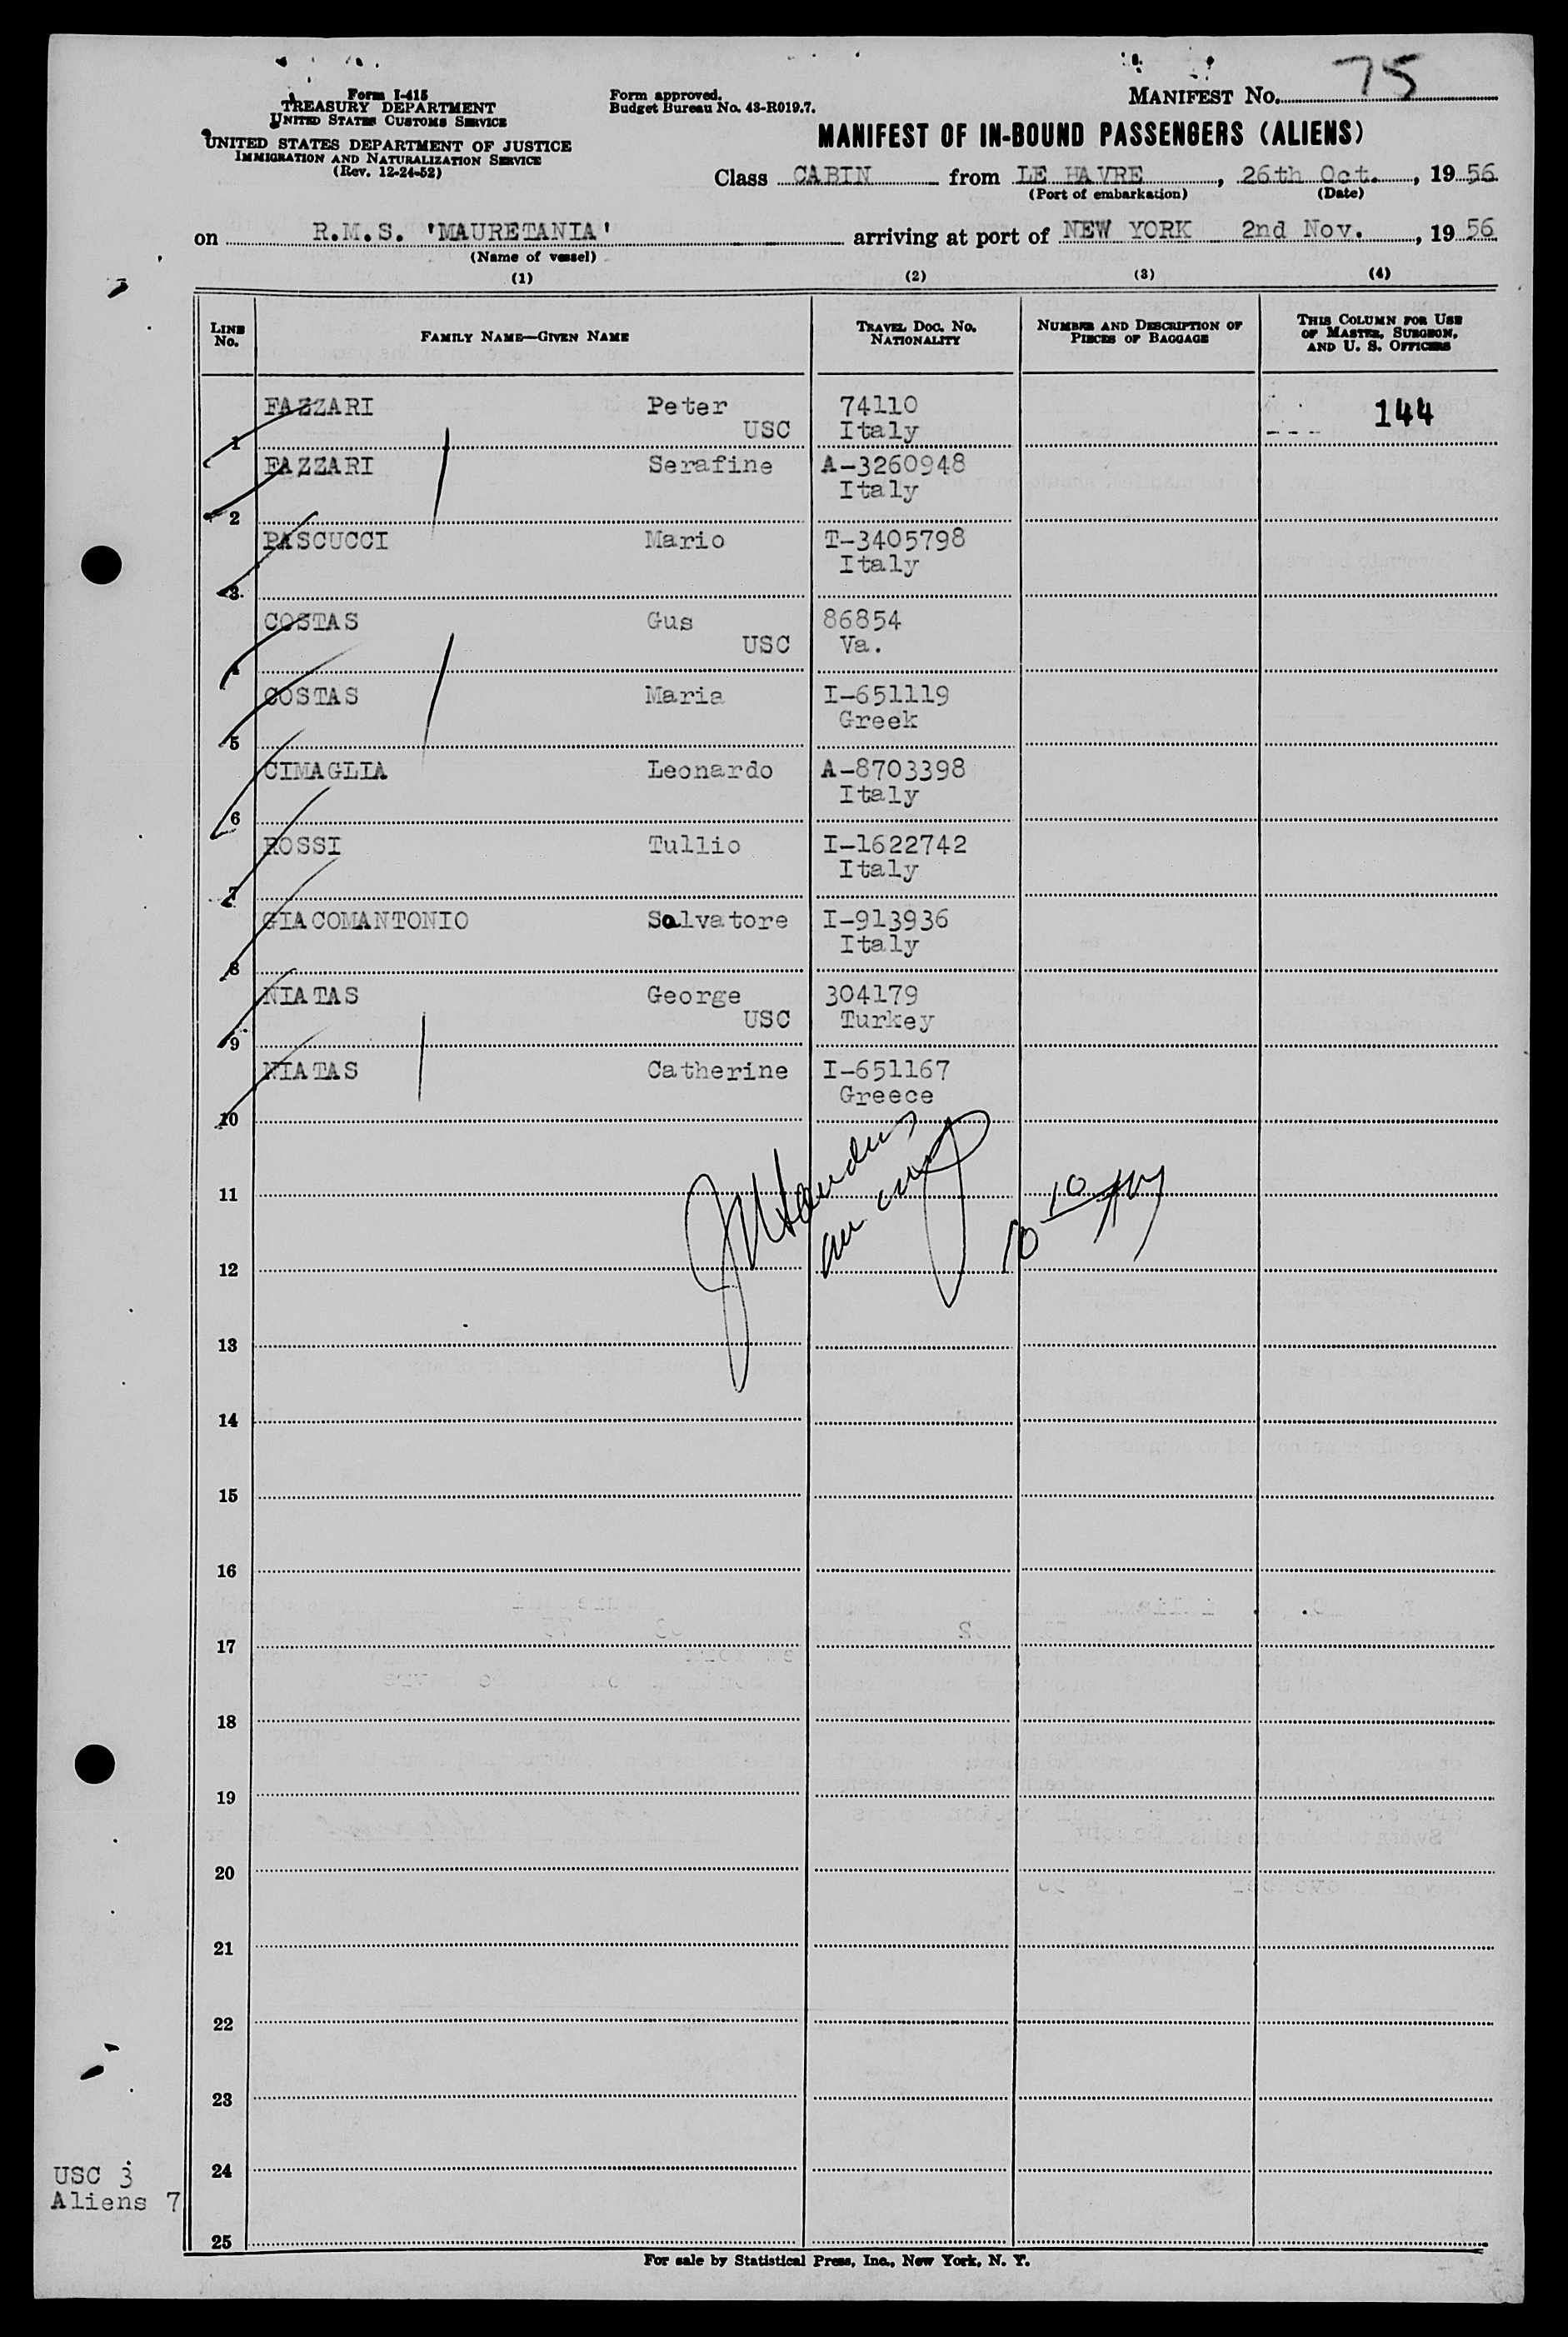 Form I-415
TREASURY DEPARTMENT
UNITED STATES CUSTOMS SERVICE
UNITED STATES DEPARTMENT OF JUSTICE
IMMIGRATION AND NATURALIZATION SERVICE
(Rev. 12-24-52)
Form approved.
Budget Bureau No. 43-R019.7.
MANIFEST NO. 75
MANIFEST OF IN-BOUND PASSENGERS (ALIENS)
Class CABIN from LE HAVRE, 26th Oct., 1956
(Port of embarkation) (Date)
on R.M.S. 'MAURETANIA' arriving at port of NEW YORK 2nd Nov., 1956
(Name of vessel)
(1) (2) (3) (4)
LINE NO. FAMILY NAME—GIVEN NAME TRAVEL DOC. NO. NATIONALITY NUMBER AND DESCRIPTION OF PIECES OF BAGGAGE THIS COLUMN FOR USE OF MASTER, SURGEON, AND U. S. OFFICERS
FAZZARI Peter 74110 144
1 USC Italy
FAZZARI Serafine A-3260948
2 Italy
PASCUCCI Mario T-3405798
3 Italy
COSTAS Gus 86854
4 USC Va.
COSTAS Maria I-651119
5 Greek
CIMAGLIA Leonardo A-8703398
6 Italy
ROSSI Tullio I-1622742
7 Italy
GIACOMANTONIO Salvatore I-913936
8 Italy
NIATAS George 304179
9 USC Turkey
NIATAS Catherine I-651167
10 Greece
11
12
13
14
15
16
17
18
19
20
21
22
23
24
25
USC 3
Aliens 7
For sale by Statistical Press, Inc., New York, N. Y.